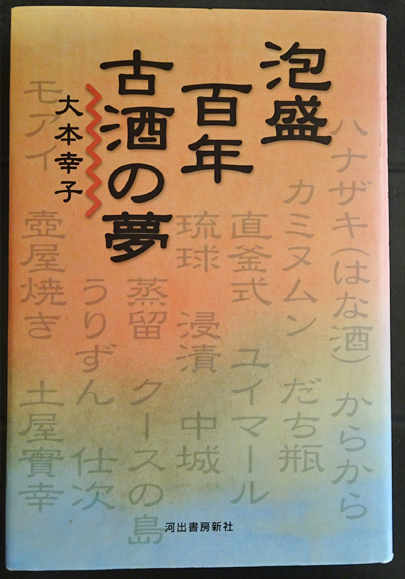 泡盛
百年
古酒の夢
大本幸子
ハナザキ(はな酒) からから
カミヌムン だち瓶
直釜式 ユイマール
琉球 浸漬 中城
蒸留 クースの島
うりずん 仕次
モアイ 壺屋焼き 土屋實幸
河出書房新社